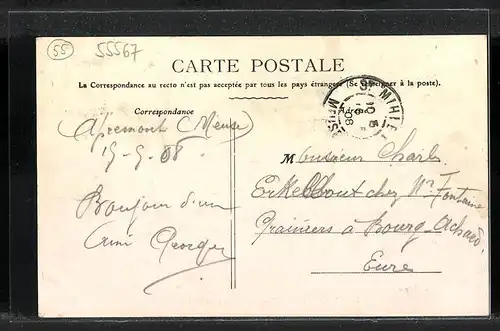 55
55567
CARTE POSTALE
La Correspondance au recto n'est pas acceptée par tous les pays étrangers (Se renseigner à la poste).
Correspondance
Adresse
ST MIHIEL
MEUSE
08
Apremont (Meuse)
Bonjour d'un
Ami Georges
Monsieur Charles
chez Mr Fontaine
Grainiers à Bourg-Achard
Eure